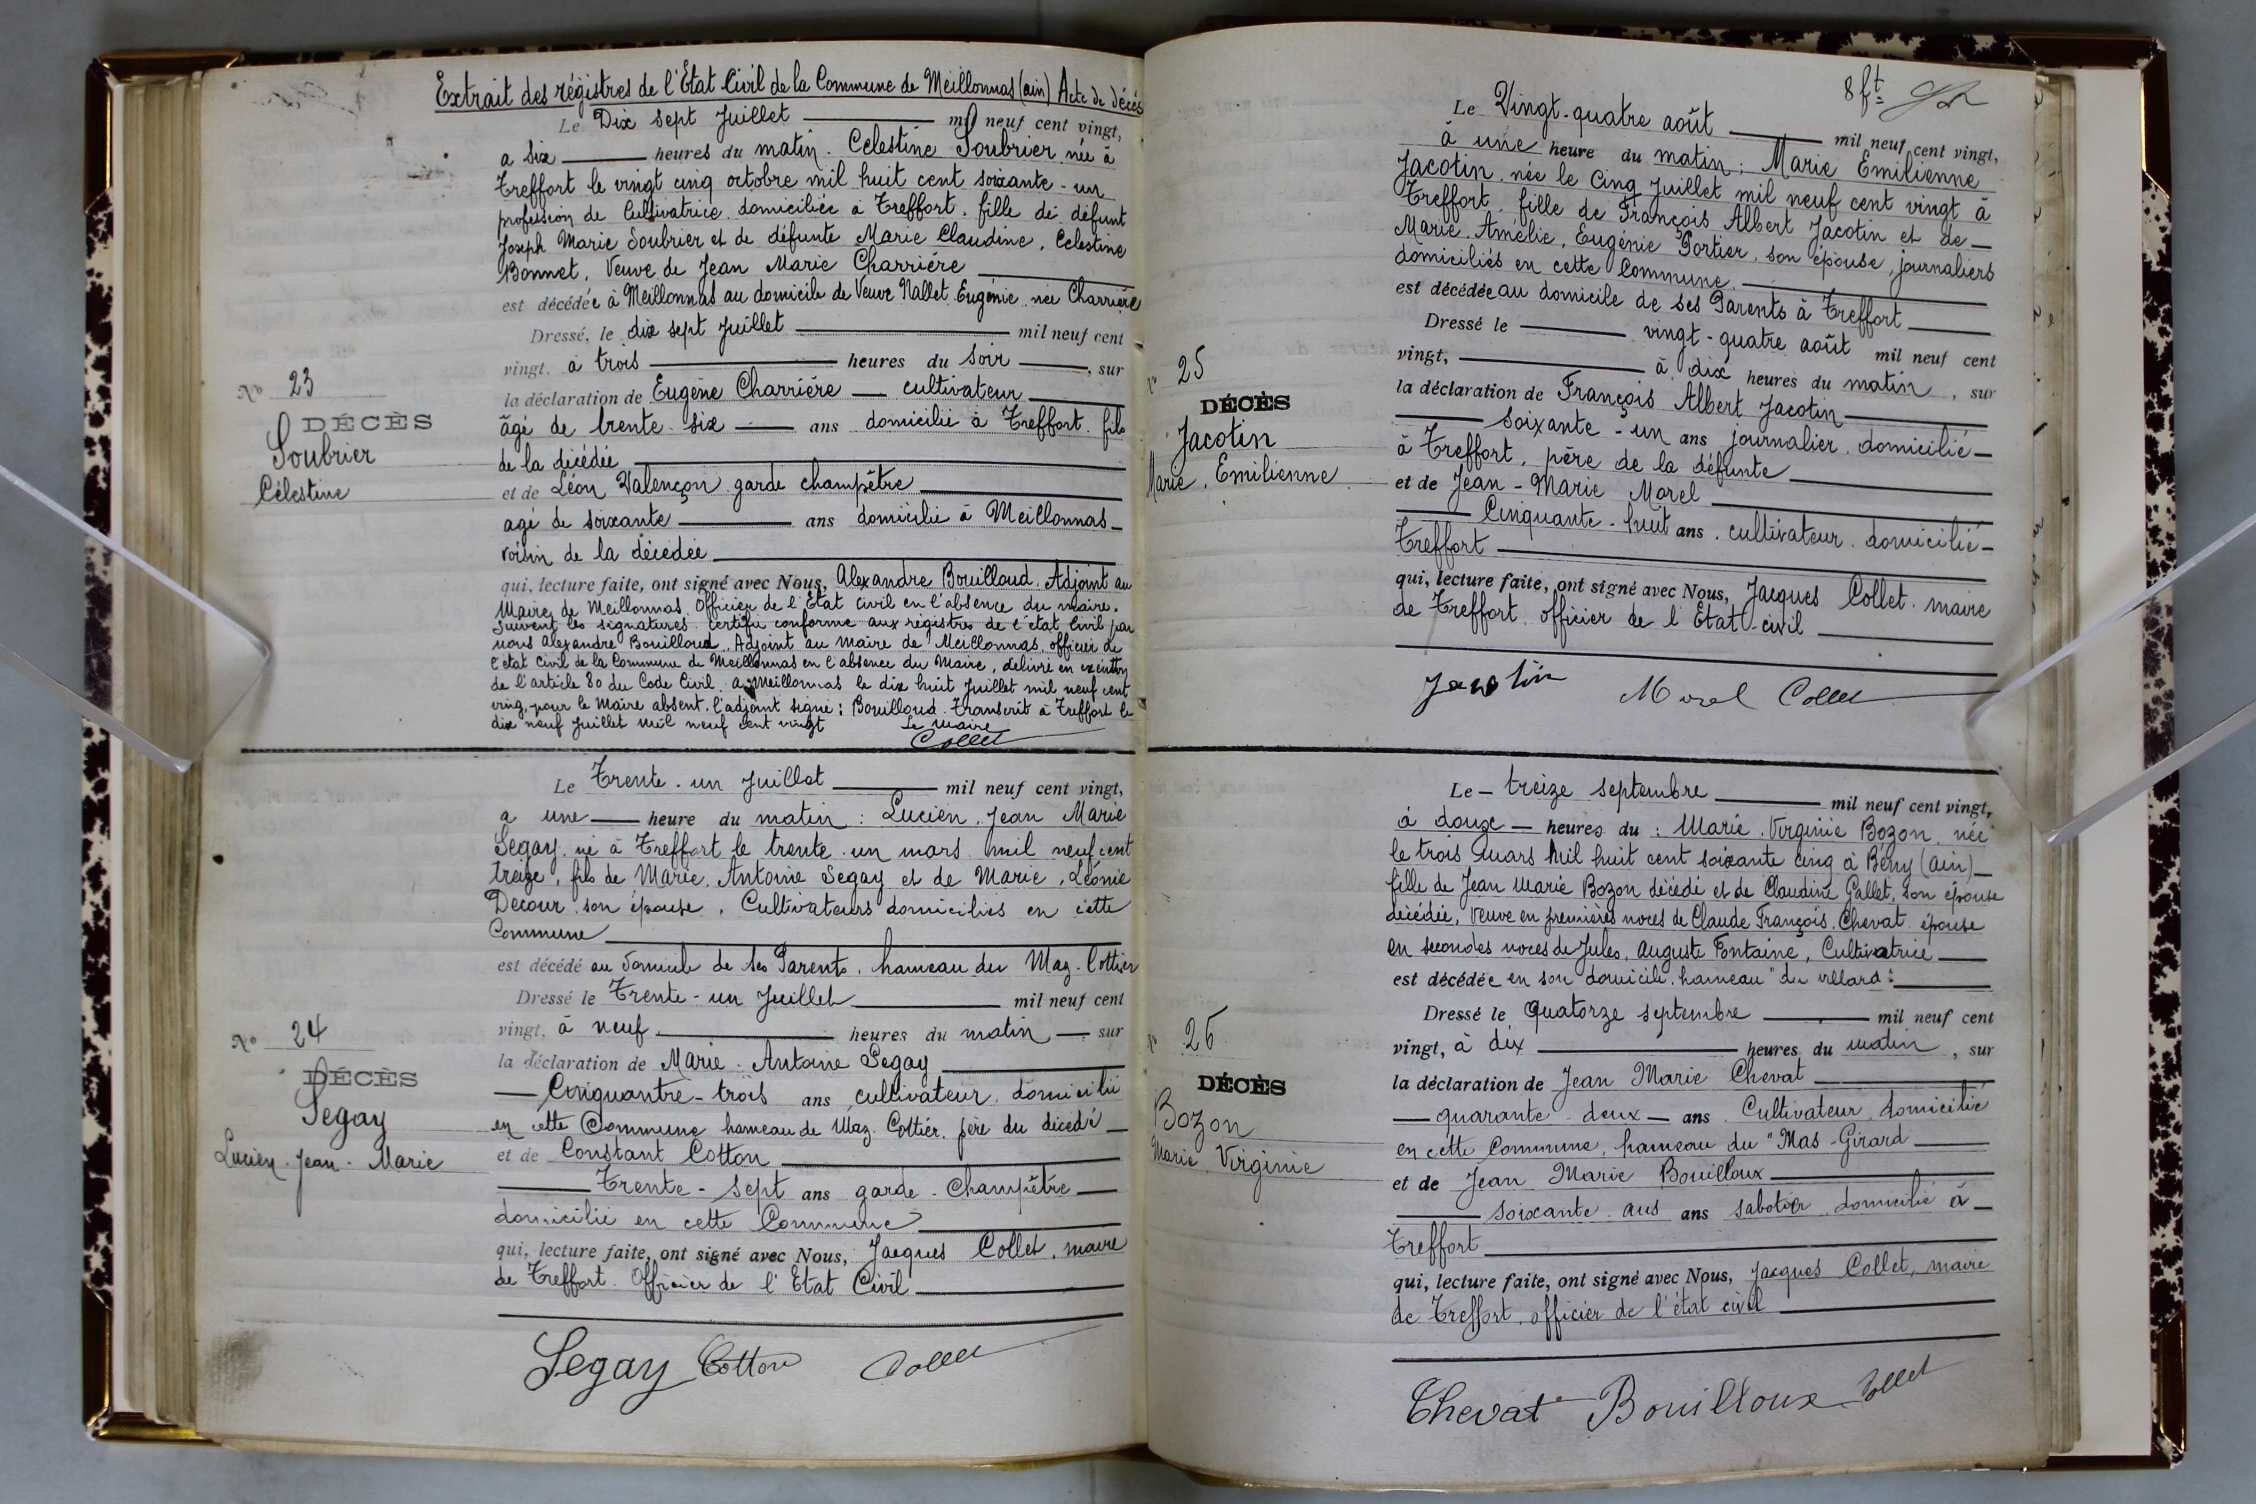 Extrait des régistres de l'Etat Civil de la Commune de Meillonnas (ain) Acte de décés
Le Dix sept Juillet mil neuf cent vingt,
a six heures du matin. Célestine Soubrier née à
Treffort le vingt cinq octobre mil huit cent soixante-un
profession de Cultivatrice domiciliée à Treffort. fille de défunt
Joseph Marie Soubrier et de défunte Marie Claudine, Celestine
Bonnet, Veuve de Jean Marie Charrière
est décédée à Meillonnas au domicile de Veuve Nallet Eugénie née Charrière
Dressé, le dix sept Juillet mil neuf cent
vingt. à trois heures du soir, sur
No 23
la déclaration de Eugène Charrière cultivateur
DÉCÈS
âgé de trente six ans domicilié à Treffort. fils
Soubrier
de la décédée
Célestine
et de Léon Valençon garde champêtre
agé de soixante ans domicilié à Meillonnas
voisin de la décédée
qui, lecture faite, ont signé avec Nous, Alexandre Bouilloud. Adjoint au
Maire de Meillonnas. Officier de l'Etat civil en l'absence du maire.
suivent les signatures. Certifié conforme aux régistres de l'état Civil par
nous Alexandre Bouilloud. Adjoint au Maire de Meillonnas, officier de
l'état civil de la Commune de Meillonnas en l'absence du Maire, délivré en exécution
de l'article 80 du Code Civil. a Meillonnas le dix huit Juillet mil neuf cent
ving, pour le Maire absent. l'adjoint signé: Bouilloud. Transcrit à Treffort le
dix neuf Juillet mil neuf cent vingt Le Maire
Collet
Le Trente-un Juillet mil neuf cent vingt,
a une heure du matin: Lucien, Jean Marie
Segay né à Treffort le trente un mars mil neuf cent
treize, fils de Marie, Antoine Segay et de Marie, Léonie
Decour son épouse, Cultivateurs domiciliés en cette
Commune
est décédé au domicile de ses Parents, hameau du Maz-Cottier
Dressé le Trente-un Juillet mil neuf cent
vingt, à neuf heures du matin sur
No 24
la déclaration de Marie-Antoine Segay
DÉCÈS
Cinquantre-trois ans cultivateur domicilié
Segay
en cette Commune hameau de Maz-Cottier, père du décédé
Lucien-Jean-Marie
et de Constant Cotton
Trente-sept ans garde-Champêtre
domicilié en cette Commune
qui, lecture faite, ont signé avec Nous, Jacques Collet, maire
de Treffort. Officier de l'Etat Civil
Segay Cotton Collet
8ft
Le Vingt-quatre août mil neuf cent vingt,
à une heure du matin; Marie Emilienne
Jacotin, née le Cinq Juillet mil neuf cent vingt à
Treffort, fille de François Albert Jacotin et de
Marie-Amélie, Eugénie Portier, son épouse, journaliers
domiciliés en cette Commune
est décédée au domicile de ses Parents à Treffort
Dressé le vingt-quatre août mil neuf cent
vingt, à dix heures du matin, sur
No 25
la déclaration de François Albert Jacotin
DÉCÈS
soixante-un ans journalier domicilié
Jacotin
à Treffort, père de la défunte
Marie, Emilienne
et de Jean-Marie Morel
Cinquante-huit ans. cultivateur domicilié
Treffort
qui, lecture faite, ont signé avec Nous, Jacques Collet. maire
de Treffort officier de l'Etat-civil
Jacotin Morel Collet
Le treize septembre mil neuf cent vingt,
à douze heures du: Marie, Virginie Bozon, née
le trois Mars Mil huit cent soixante cinq à Bény (ain)
fille de Jean Marie Bozon décédé et de Claudine Gallet, son épouse
décédée, Veuve en premières noces de Claude François. Chevat épouse
en secondes noces de Jules, Auguste Fontaine, Cultivatrice
est décédée en son domicile. hameau "du villard:
Dressé le quatorze septembre mil neuf cent
vingt, à dix heures du matin, sur
No 26
la déclaration de Jean Marie Chevat
DÉCÈS
quarante-deux ans Cultivateur domicilié
Bozon
en cette Commune, hameau du "Mas-Girard
Marie, Virginie
et de Jean Marie Bouilloux
soixante ans ans sabotier domicilié à
Treffort
qui, lecture faite, ont signé avec Nous, Jacques Collet, maire
de Treffort, officier de l'état civil
Chevat Bouilloux Collet